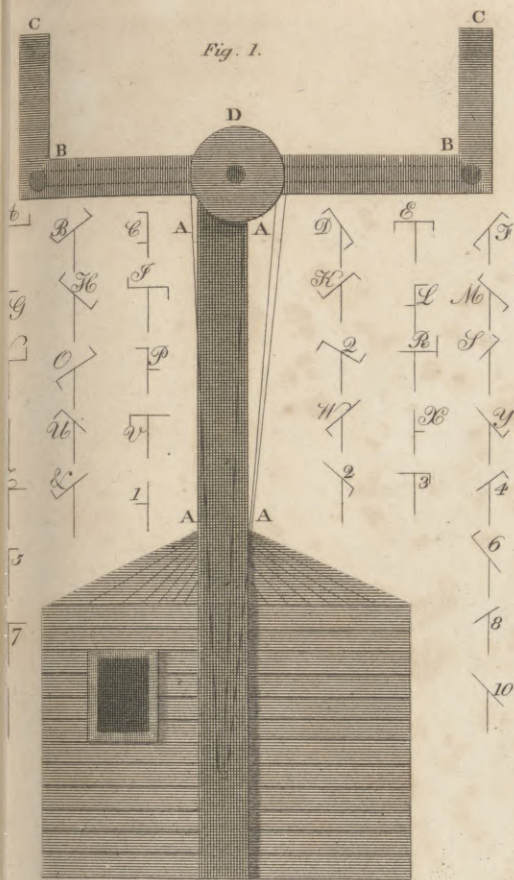 C C
Fig. 1.
D
B B
A A
B C D E F
G H I K L M
O P Q R S
U V W X Y
& 1 2 3 4
A A
5 6
7 8
10